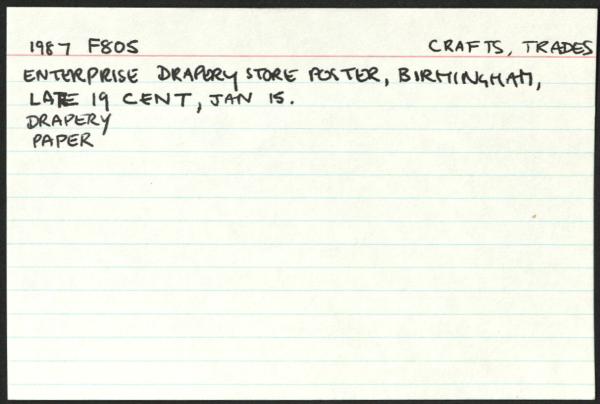 1987 F805 CRAFTS, TRADES
ENTERPRISE DRAPERY STORE POSTER, BIRMINGHAM,
LATE 19 CENT, JAN 15.
DRAPERY
PAPER